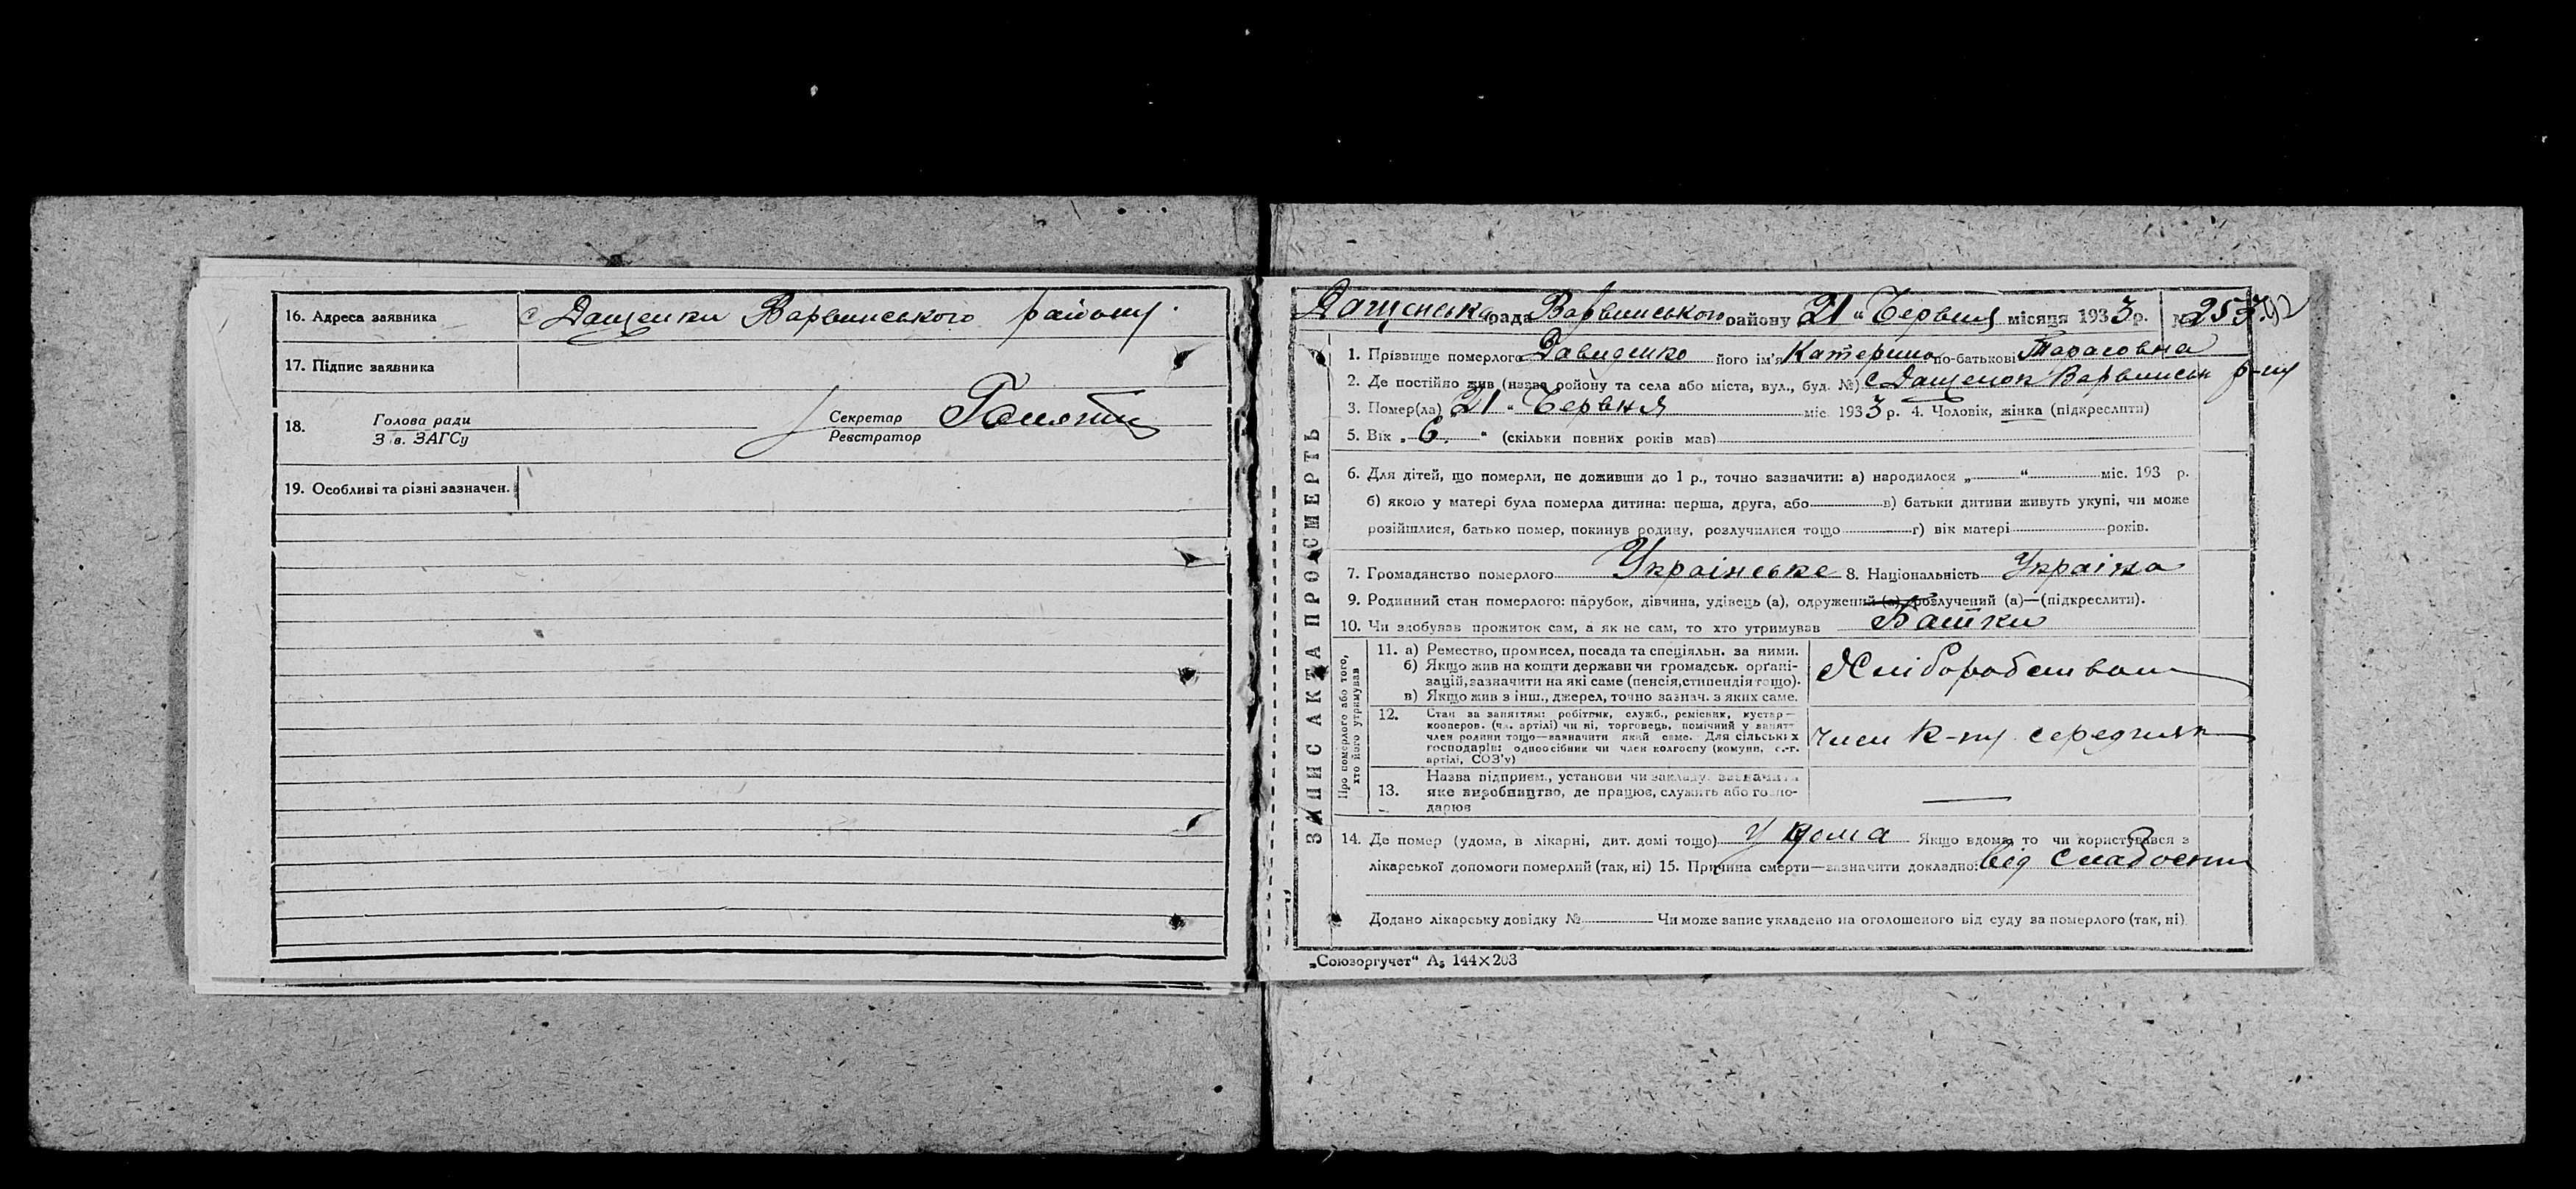 16. Адреса заявника с Дащенки Варвинського району.
17. Підпис заявника
18. Голова ради Секретар
З в. ЗАГСу Реєстратор
19. Особливі та різні зазначен.
Дащенська рада Варвинського району 21 " Червня місяця 1933 р. № 253
ЗАПИС АКТА ПРО СМЕРТЬ
1. Прізвище померлого Давиденко його ім'я Катерина по-батькові Тарасовна
2. Де постійно жив (назва району та села або міста, вул., буд. №) с Дащенок Варвинськ р-ну
3. Помер(ла) „21 " Червня міс. 1933 р. 4. Чоловік, жінка (підкреслити)
5. Вік „ 6. " (скільки повних років мав)
6. Для дітей, що померли, не доживши до 1 р., точно зазначити: а) народилося „ " міс. 193 р.
б) якою у матері була померла дитина: перша, друга, або в) батьки дитини живуть укупі, чи може
розійшлися, батько помер, покинув родину, розлучилися тощо г) вік матері років.
7. Громадянство померлого Українське 8. Національність Україна
9. Родинний стан померлого: парубок, дівчина, удівець (а), одружений (а) розлучений (а)—(підкреслити).
10. Чи здобував прожиток сам, а як не сам, то хто утримував Батки
Про померлого або того,
хто його утримував
11. а) Ремество, промисел, посада та спеціяльн. за ними.
б) Якщо жив на кошти держави чи громадськ. органі-
зацій, зазначити на які саме (пенсія, стипендія тощо).
в) Якщо жив з інш., джерел, точно зазнач. з яких саме.
Хліборобством
12. Стан за заняттям: робітник, служб., ремісник, кустар—
кооперов. (чл. артілі) чи ні, торговець, помічний у занятт
член родини тощо—зазначити який саме. Для сільських
господарів: одноосібник чи член колгоспу (комуни, с.-г.
артілі, СОЗ'у)
член к-пу середняк
13. Назва підприєм., установи чи закладу, зазначити
яке виробництво, де працює, служить або госпо-
дарює —
14. Де помер (удома, в лікарні, дит. домі тощо) у дома Якщо вдома, то чи користувався з
лікарської допомоги померлий (так, ні) 15. Причина смерти—зазначити докладно: від слабости
Додано лікарську довідку № Чи може запис укладено на оголошеного від суду за померлого (так, ні)
„Союзоргучет" А₅ 144×203